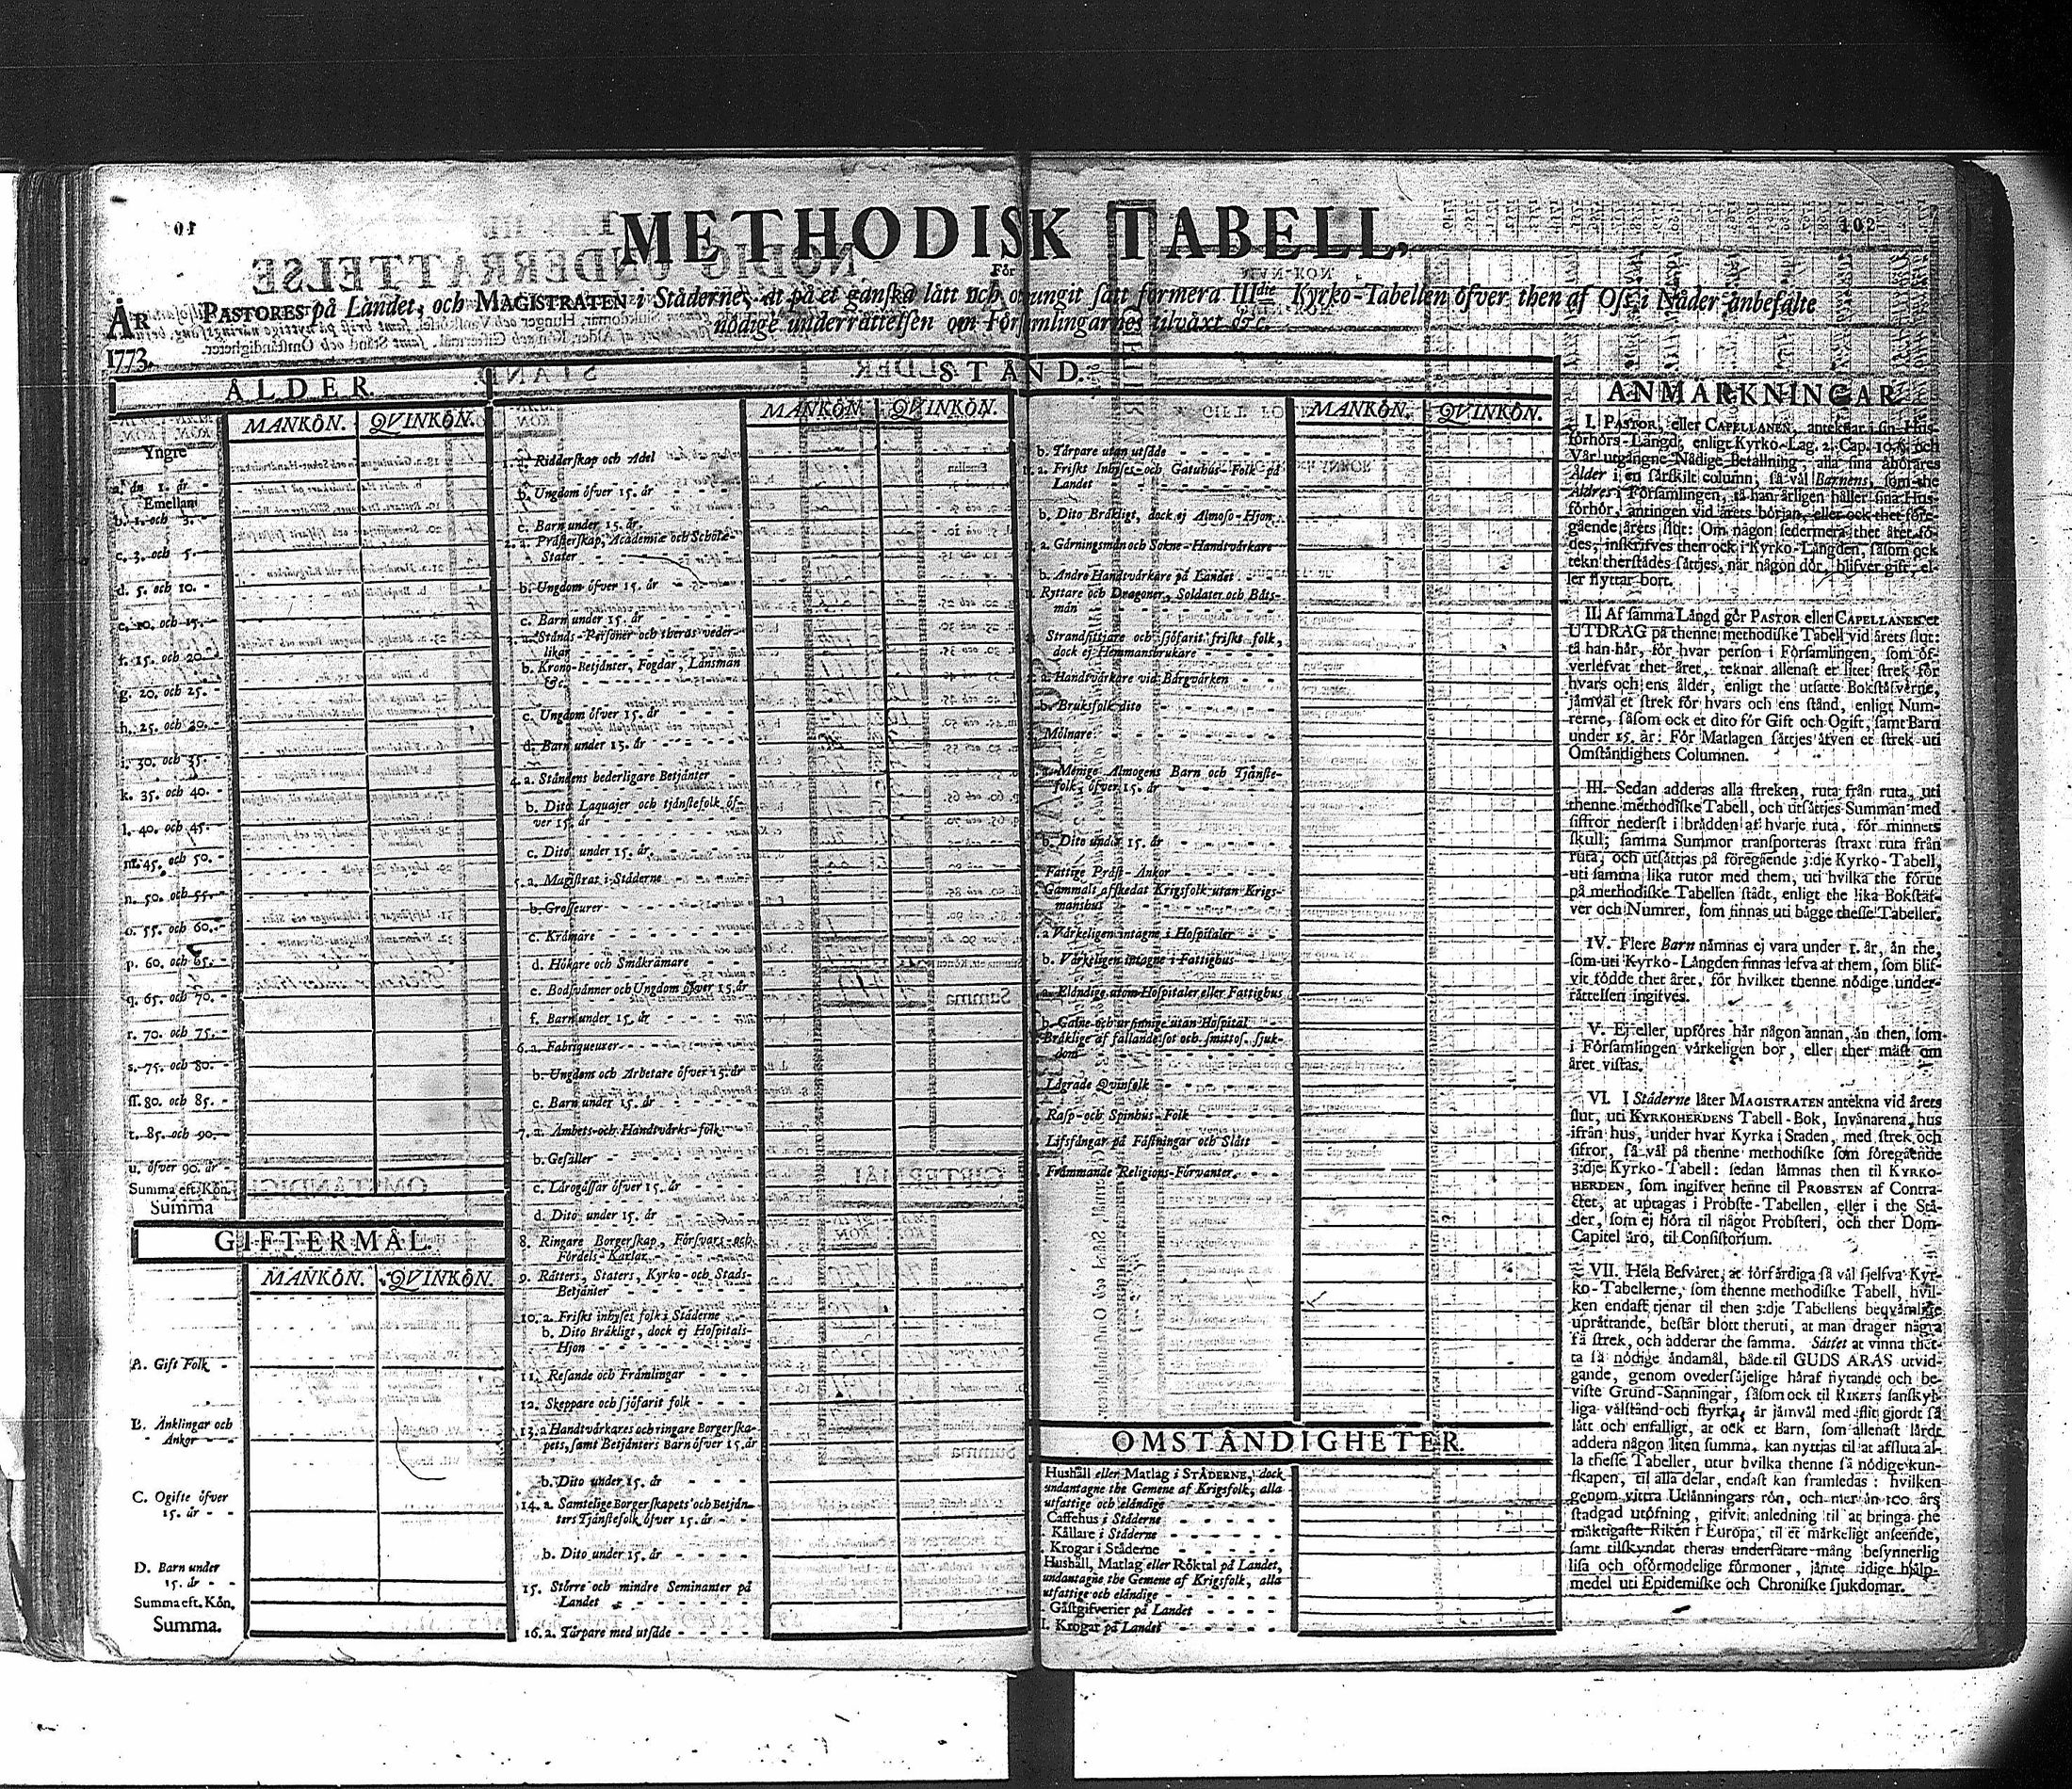 101
102
METHODISK TABELL,
För
PASTORES på Landet, och MAGISTRATEN i Städerne, at på et ganska lätt och otungit sätt formera III:die Kyrko-Tabellen öfver then af Oss i Nåder anbefalte
nödige underrättelsen om Församlingarnes tilväxt &c.
ÅR
1773.
ÅLDER.
MANKÖN. QVINKÖN.
Yngre
a. än 1. år -
Emellan
b. 1. och 3. -
c. 3. och 5. -
d. 5. och 10. -
e. 10. och 15. -
f. 15. och 20. -
g. 20. och 25. -
h. 25. och 30. -
i. 30. och 35. -
k. 35. och 40. -
l. 40. och 45. -
m. 45. och 50. -
n. 50. och 55. -
o. 55. och 60. -
p. 60. och 65. -
q. 65. och 70. -
r. 70. och 75. -
s. 75. och 80. -
ff. 80. och 85. -
t. 85. och 90. -
u. öfver 90. år -
Summa eft. Kön.
Summa
GIFTERMÅL.
MANKÖN. QVINKÖN.
A. Gift Folk -
B. Änklingar och
Änkor - -
C. Ogifte öfver
15. år - -
D. Barn under
15. år - -
Summa eft. Kön.
Summa.
STÅND.
MANKÖN. QVINKÖN.
Ridderskap och Adel
b. Ungdom öfver 15. år
c. Barn under 15. år
2. a. Prästerskap, Academiæ och Schole-
Stater
b. Ungdom öfver 15. år
c. Barn under 15. år
3. a. Stånds-Personer och theras veder-
likar
b. Krono-Betjänter, Fogdar, Länsmän
&c.
c. Ungdom öfver 15. år
d. Barn under 15. år
4. a. Ståndens hederligare Betjänter
b. Dito Laquajer och tjänstefolk öf-
ver 15. år
c. Dito under 15. år
5. a. Magistrat i Städerne
b. Grosseurer
c. Krämare
d. Hökare och Småkrämare
e. Bodsvänner och Ungdom öfver 15. år
f. Barn under 15. år
6. a. Fabriqueurer
b. Ungdom och Arbetare öfver 15. år
c. Barn under 15. år
7. a. Ämbets- och Handtvärks-folk
b. Gesäller
c. Lärogåssar öfver 15. år
d. Dito under 15. år
8. Ringare Borgerskap, Försvars- och
Fördels-Karlar
9. Rätters, Staters, Kyrko- och Stads-
Betjänter
10. a. Friskt inhyses folk i Städerne
b. Dito Bräkligt, dock ej Hospitals-
Hjon
11. Resande och Främlingar
12. Skeppare och sjöfarit folk
13. a. Handtvärkares och ringare Borgerska-
pets, samt Betjänters Barn öfver 15. år
b. Dito under 15. år
14. a. Samtelige Borgerskapets och Betjän-
ters Tjänstefolk öfver 15. år
b. Dito under 15. år
15. Större och mindre Seminanter på
Landet
16. a. Tårpare med utsäde
MANKÖN. QVINKÖN.
b. Tårpare utan utsäde
a. Friskt Inhyses- och Gatuhus-Folk på
Landet
b. Dito Bräkligt, dock ej Almoso-Hjon
a. Gärningsmän och Sokne-Handtvärkare
b. Andre Handtvärkare på Landet
Ryttare och Dragoner, Soldater och Båts-
män
Strandsittjare och sjöfarit friskt folk,
dock ej Hemmansbrukare
a. Handtvärkare vid Bärgvärken
b. Bruksfolk dito
Mölnare
a. Menige Almogens Barn och Tjänste-
folk, öfver 15. år
b. Dito under 15. år
Fattige Präst-Änkor
Gammalt afskedat Krigsfolk utan Krigs-
manshus
a. Värkeligen intagne i Hospitaler
b. Värkeligen intagne i Fattighus
a. Eländige utom Hospitaler eller Fattighus
b. Galne och ursinnige utan Hospital
Bräklige af fallandesot och smittos. sjuk-
dom
Lägrade Qvinfolk
Rasp- och Spinhus-Folk
Lifsfångar på Fästningar och Slått
Främmande Religions-Förvanter
OMSTÄNDIGHETER.
Hushåll eller Matlag i STÄDERNE, dock
undantagne the Gemene af Krigsfolk, alla
utfattige och eländige
Caffehus i Städerne
Källare i Städerne
Krogar i Städerne
Hushåll, Matlag eller Röktal på Landet,
undantagne the Gemene af Krigsfolk, alla
utfattige och eländige
Gästgifverier på Landet
l. Krogar på Landet
ANMÄRKNINGAR
I. PASTOR, eller CAPELLANEN, anteknar i sin Hus-
förhörs-Längd, enligt Kyrko-Lag. 2. Cap. 10. §. och
Vår utgångne Nådige Befallning, alla sina åhörares
Ålder i en särskilt column, så väl Barnens, som the
Äldres i Församlingen, tå han årligen håller sina Hus-
förhör, antingen vid årets början, eller ock thet före-
gående årets slut: Om någon sedermera thet året fö-
des, inskrifves then ock i Kyrko-Längden, såsom ock
tekn therstädes sättjes, när någon dör, blifver gift, el-
ler flyttar bort.
II. Af samma Längd gör PASTOR eller CAPELLANEN et
UTDRAG på thenne methodiske Tabell vid årets slut:
tå han här, för hvar person i Församlingen, som öf-
verlefvat thet året, teknar allenast et litet strek för
hvars och ens ålder, enligt the utsatte Bokstäfverne,
jämväl et strek för hvars och ens stånd, enligt Num-
rerne, såsom ock et dito för Gift och Ogift, samt Barn
under 15. år: För Matlagen sättjes äfven et strek uti
Omständighets Columnen.
III. Sedan adderas alla streken, ruta från ruta, uti
thenne methodiske Tabell, och utsättjes Summan med
siffror nederst i brädden af hvarje ruta, för minnets
skull; samma Summor transporteras straxt ruta från
ruta, och utsättjas på föregående 3:dje Kyrko-Tabell,
uti samma lika rutor med them, uti hvilka the förut
på methodiske Tabellen städt, enligt the lika Bokstäf-
ver och Numrer, som finnas uti bägge thesse Tabeller.
IV. Flere Barn nämnas ej vara under 1. år, än the,
som uti Kyrko-Längden finnas lefva af them, som blif-
vit födde thet året, för hvilket thenne nödige under-
rättelsen ingifves.
V. Ej eller upföres här någon annan, än then, som
i Församlingen värkeligen bor, eller ther mäst om
året vistas.
VI. I Städerne låter MAGISTRATEN antekna vid årets
slut, uti KYRKOHERDENS Tabell-Bok, Invånarena, hus
ifrån hus, under hvar Kyrka i Staden, med strek och
sifror, så väl på thenne methodiske som föregående
3:dje Kyrko-Tabell: sedan lämnas then til KYRKO-
HERDEN, som ingifver henne til PROBSTEN af Contra-
ctet, at uptagas i Probste-Tabellen, eller i the Stä-
der, som ej höra til något Probsteri, och ther Dom-
Capitel äro, til Consistorium.
VII. Hela Besväret, at förfärdiga så väl sjelfva Kyr-
ko-Tabellerne, som thenne methodiske Tabell, hvil-
ken endast tjenar til then 3:dje Tabellens beqvämlige
uprättande, består blott theruti, at man drager några
få strek, och adderar the samma. Sättet at vinna thet-
ta så nödige ändamål, både til GUDS ÄRAS utvid-
gande, genom ovedersäjelige häraf flytande och be-
viste Grund-Sanningar, såsom ock til RIKETS sanskyl-
liga välstånd och styrka, är jämväl med flit gjordt så
lätt och enfalligt, at ock et Barn, som allenast lärdt
addera någon liten summa, kan nyttjas til at afsluta al-
la thesse Tabeller, utur hvilka thenne så nödige kun-
skapen, til alla delar, endast kan framledas: hvilken
genom vittra Utlänningars rön, och mer än 100 års
stadgad utöfning, gifvit anledning til at bringa the
mäktigaste Riken i Europa, til et märkeligt anseende,
samt tilskyndat theras undersåtare mång besynnerlig
lisa och oförmodelige förmoner, jämte tidige hjälp-
medel uti Epidemiske och Chroniske sjukdomar.